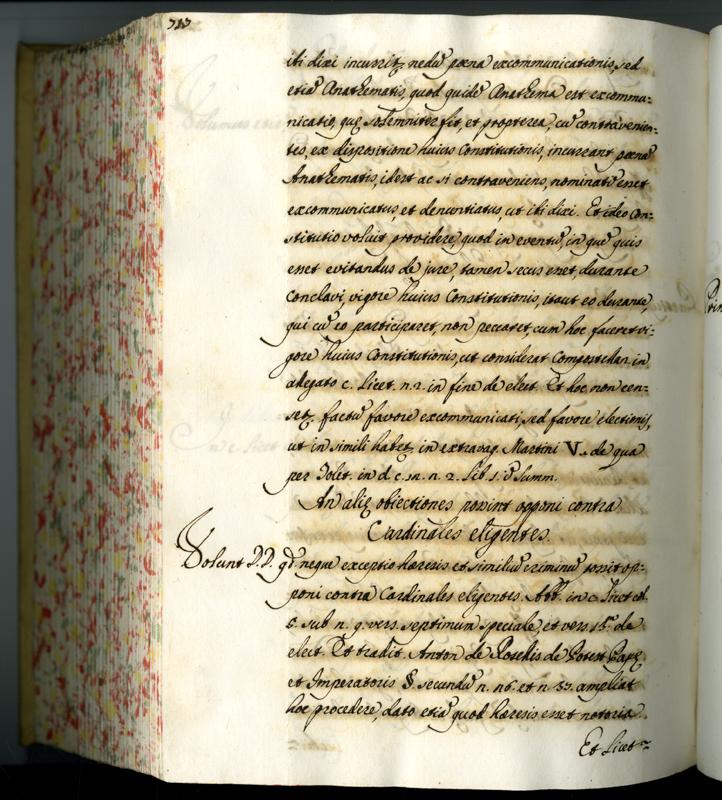 713
ibi dixi incurritq nedũ pœna excommunicationis, sed
etiã Anathematis, quod quidẽ Anathema est excommu-
nicatio, quę solemniter fit, et propterea, cũ contravenien-
tes, ex dispositione huius Constitutionis, incurrant pœnã
Anathematis, idest ac si contraveniens, nominatĩ esset
excommunicatus, et denuntiatus, ut ibi dixi. Et ideo Con-
stitutio voluit providere, quod in eventũ, in quẽ quis
esset evitandus de jure, tamen secus esset, durante
Conclavi, vigore huius Constitutionis, itaut eo durante,
qui cũ eo participaret, non peccaret, cum hoc faceret vi-
gore huius Constitutionis, ut considerat Compostellan. in
allegato c. licet. n. 2. in fine de elect. Et hoc non cen-
setq factũ favore excommunicati, sed favore electionis,
ut in simili habetq in extravag. Martini V. de qua
per Tolet. in d. c. n. 2. lib. 1. Summ.
An alię obiectiones possint opponi contra
Cardinales eligentes.
Volunt D.D. qd. neque exceptio hæresis et similiũ criminũ possit op-
poni contra Cardinales eligentes. Abb. in c. licet col.
6. sub n. 9. vers. septimum speciale, et vers. 15.m de
elect. Et tradit Anton de Rosellis de Potest. Papę
et Imperatoris § secundũ n. et n. 37. ampliat
hoc procedere, dato etiã quod hæresis esset notoria.
Et licet
Prin